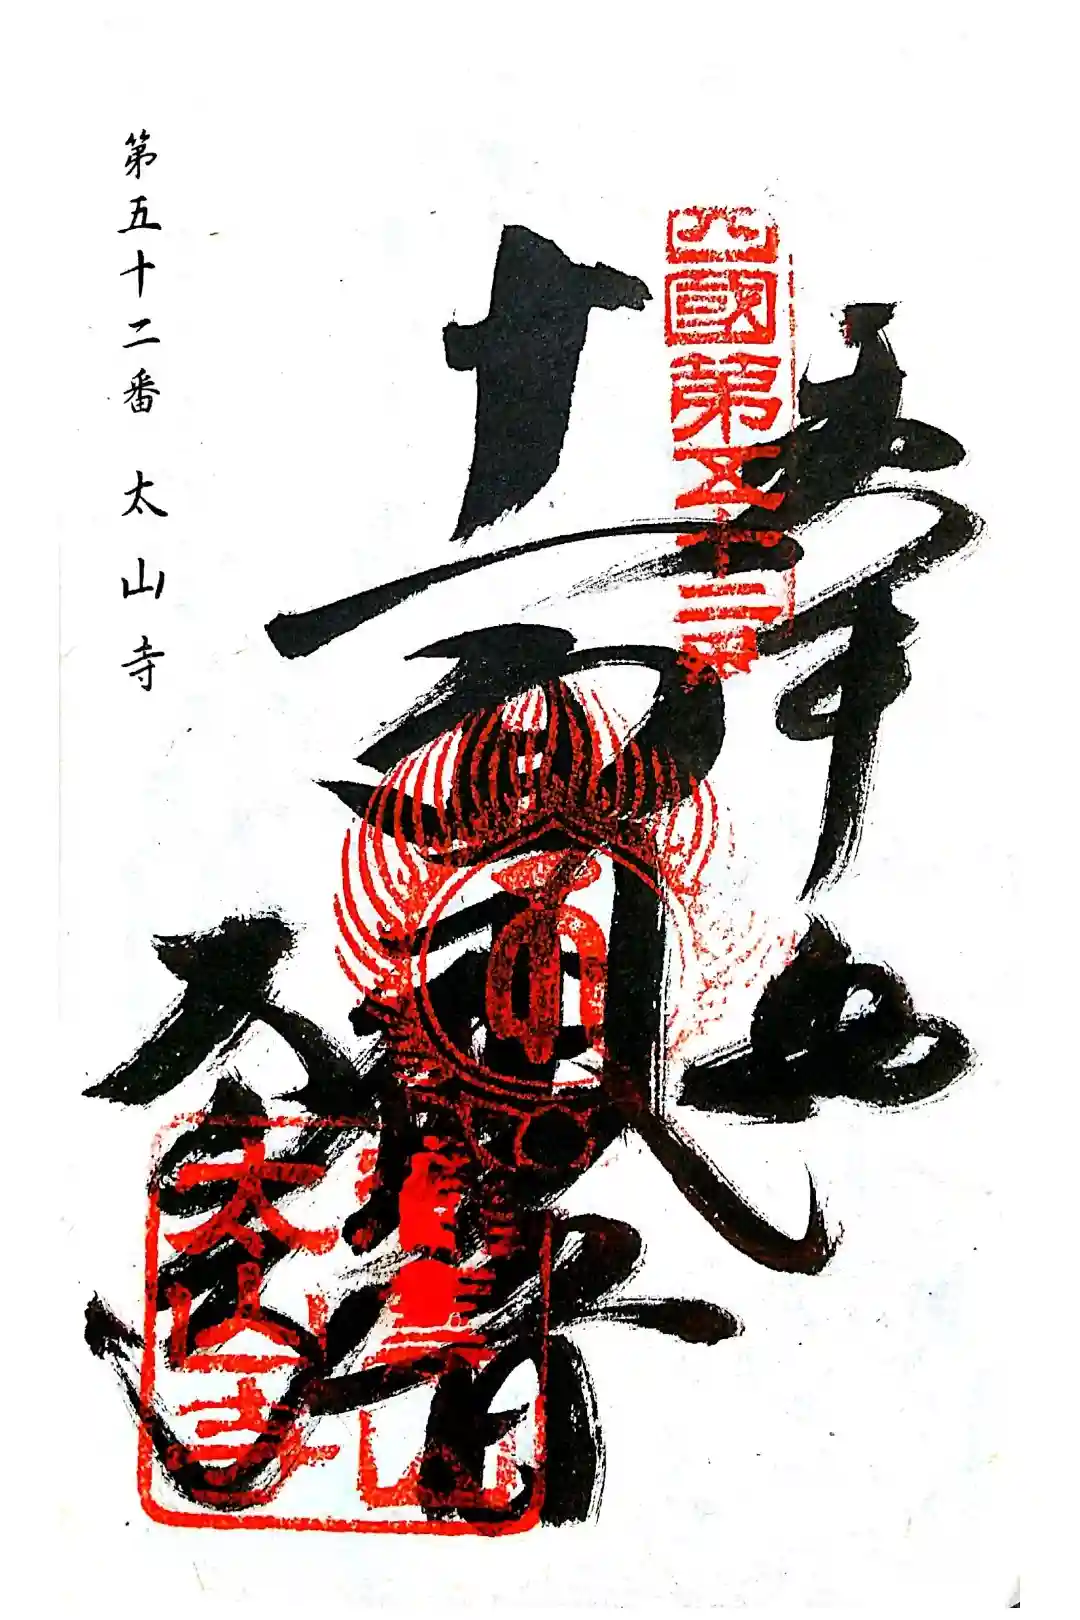 四國第五十二番
奉拜
十一面觀音
太山寺
瀧雲山
太山寺
第五十二番 太山寺